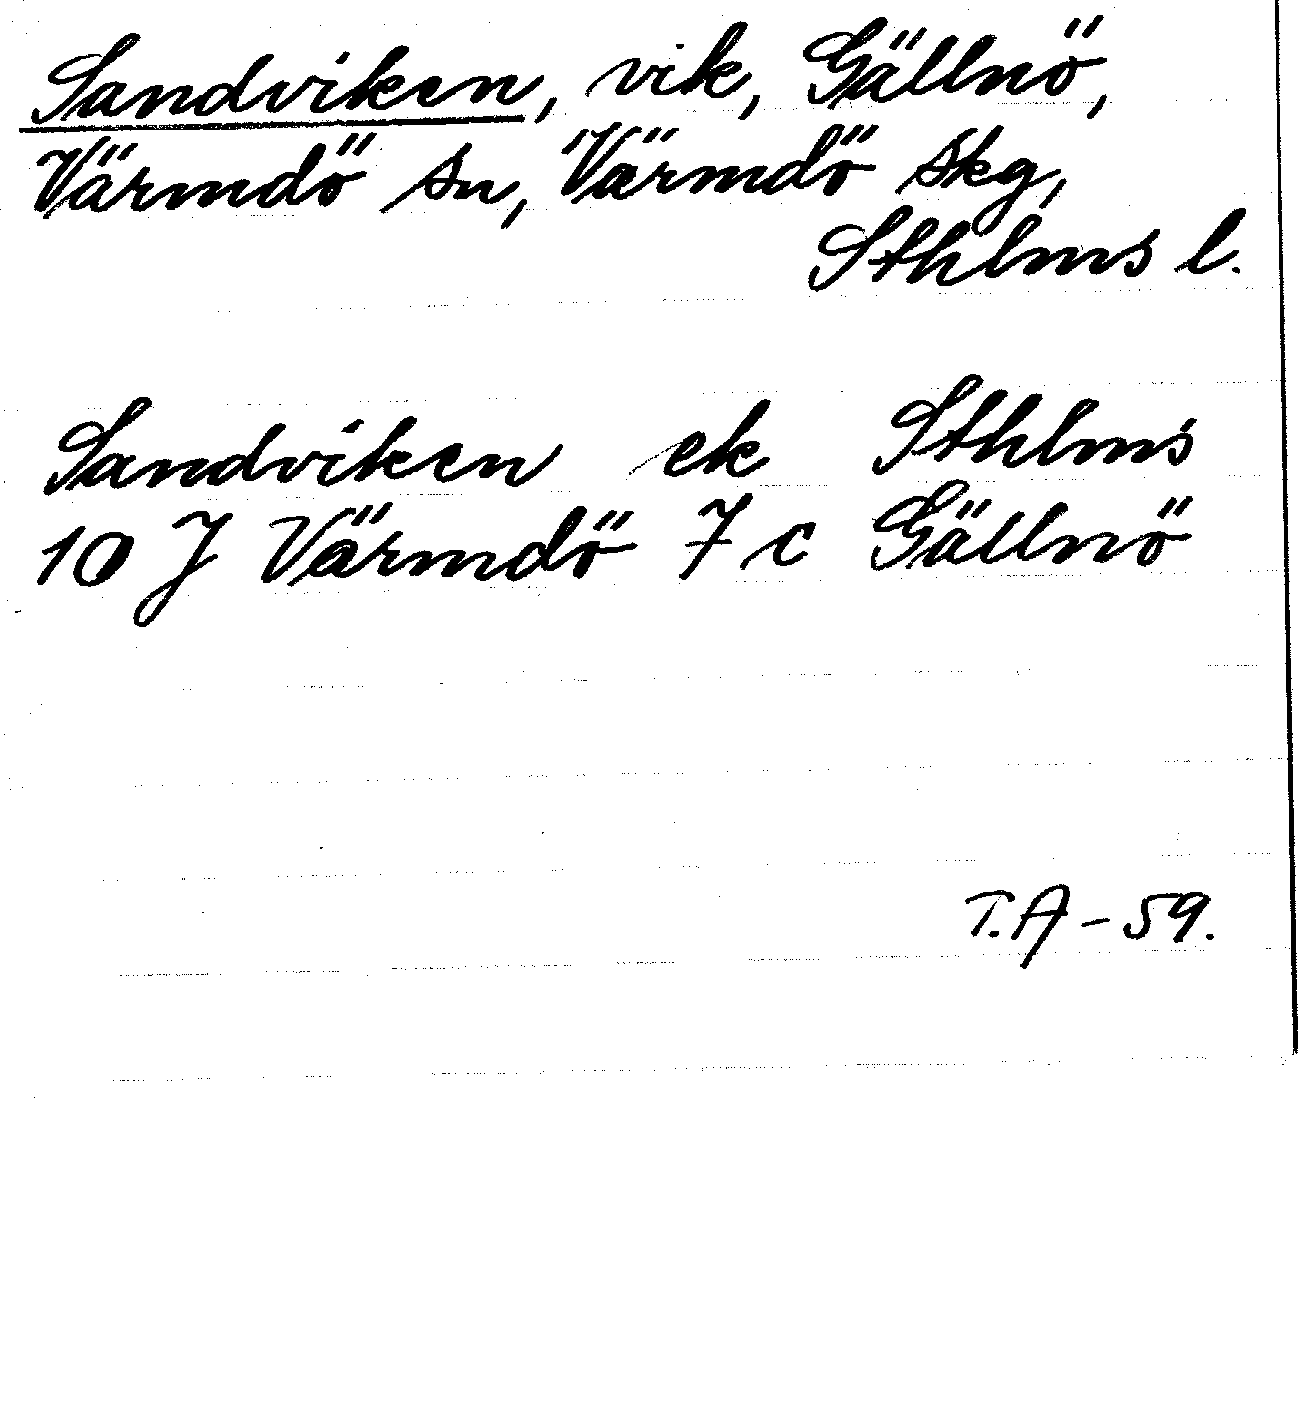 Sandviken, vik, Gällnö,
Värmdö sn, Värmdö skg,
Sthlms l.
Sandviken ek Sthlms
10 J Värmdö 7 c Gällnö
T.A - 59.